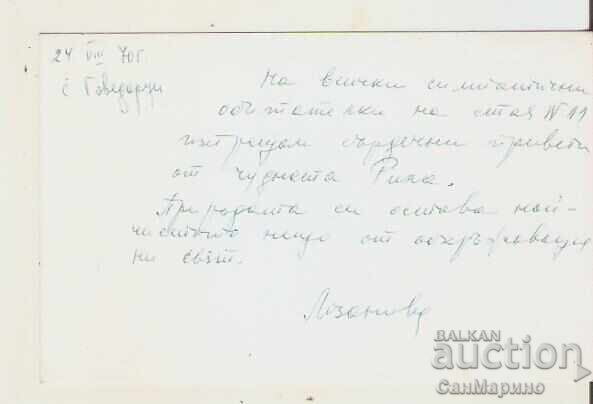 24 VIII 70 г.
с. Говедарци
На всички симпатични
обитателки на стая №11
изпращам сърдечни привети
от чудната Рила.
Природата си остава най-
чистото нещо от обкръжаващия
ни свят.
Лозанова
BALKAN
auction
СанМарино